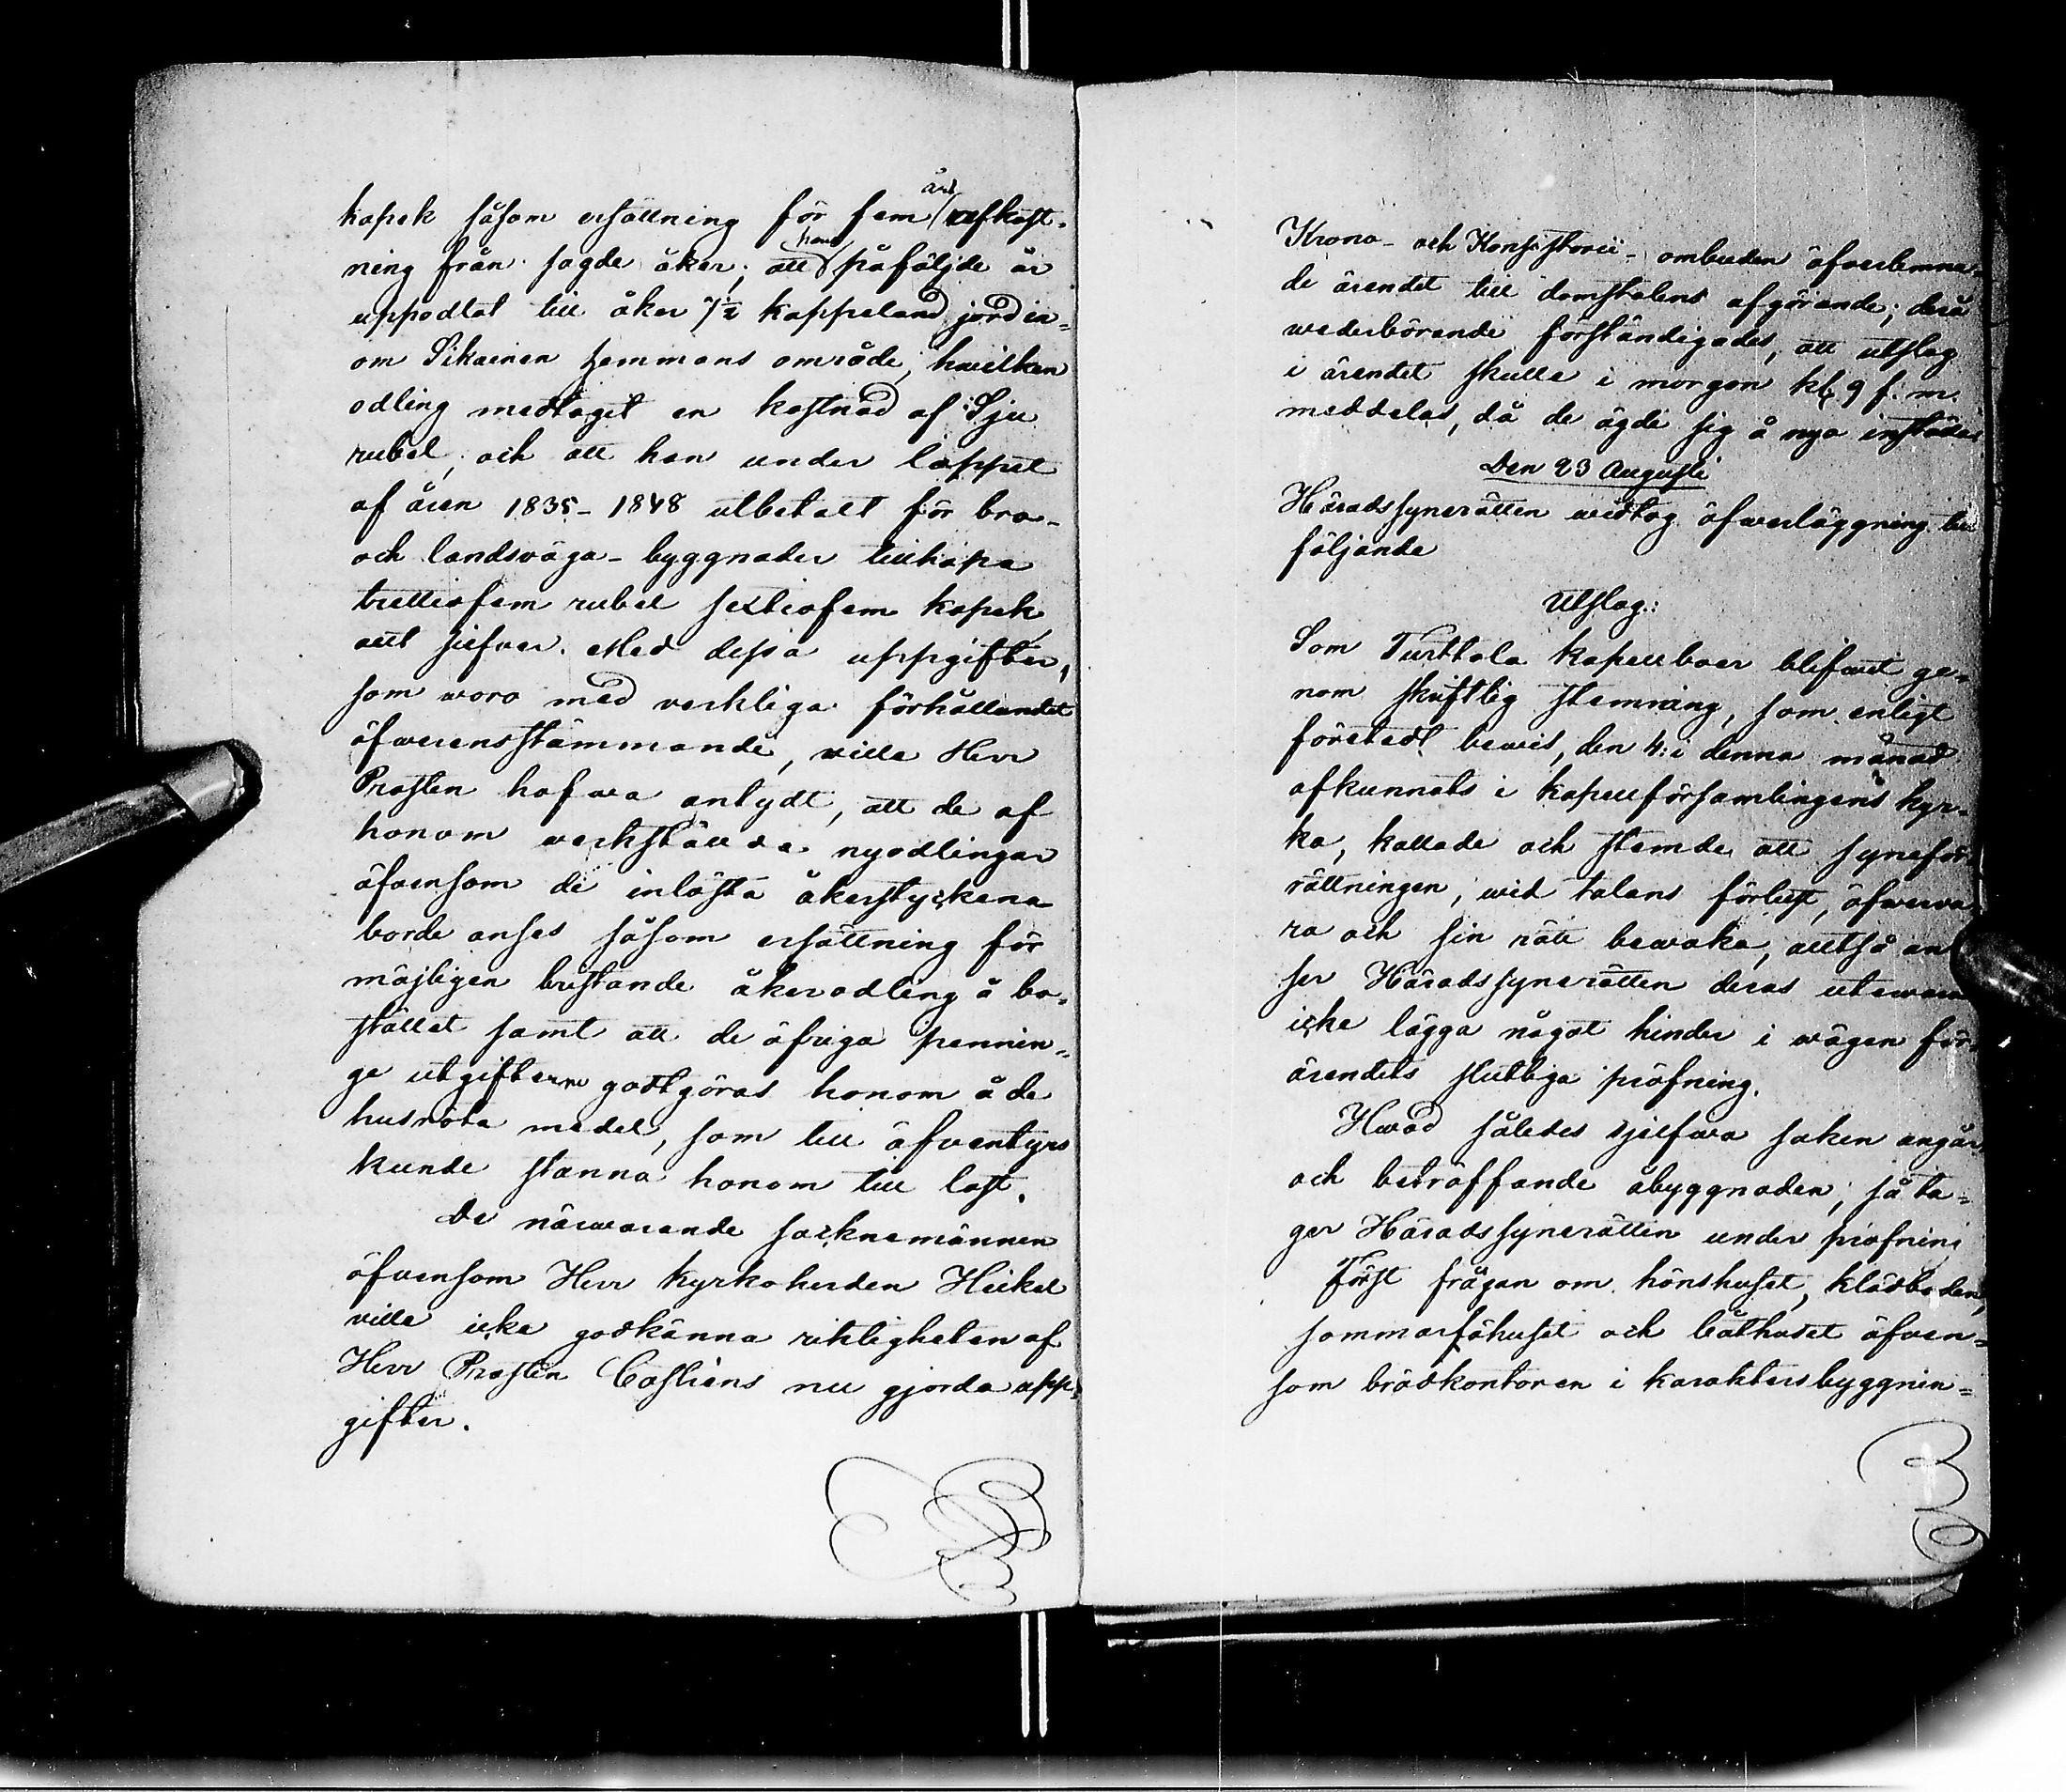 kopek såsom ersättning för fem års afkast-
ning från sagde åker; att han påföljde år
uppodlat till åker 7½ kappeland jord in-
om Sikainen hemmans område, hvilken
odling medtagit en kostnad af Sju
rubel, och att han under loppet
af åren 1835-1848 utbetalt för bro-
och landsväga-byggnader tillhopa
trettiofem rubel sextiofem kopek,
allt silfver. Med dessa uppgifter,
som voro med verkliga förhållandet
öfverensstämmande, ville Herr
Prosten hafva antydt, att de af
honom verkställda nyodlingar
äfvensom de inlösta åkerstyckena
borde anses såsom ersättning för
möjligen bristande åkerodling å bo-
stället samt att de öfriga pennin-
ge utgifterne godtgöras honom å de
husröta medel, som till äfventyrs
kunde stanna honom till last.
De närvarande socknemännen
äfvensom Herr Kyrkoherden Heikel
ville icke godkänna riktigheten af
Herr Prosten Castréns nu gjorda upp-
gifter.
Krono- och Konsistorii-ombuden öfverlemna-
de ärendet till domstolens afgörande; derå
wederbörande förständigades, att utslag
i ärendet skulle i morgon kl. 9 f.m.
meddelas, då de ägde sig å nyo inställa.
Den 23 Augusti
Häradssynerätten widtog öfwerläggning till
följande
Utslag:
Som Turtola kapellboer blifwit ge-
nom skriftlig stemning, som enligt
företedt bewis, den 4:i denna månad
afkunnats i kapellförsamlingens kyr-
ka, kallade och stemde att syneför-
rättningen, wid talans förlust, öfwerva-
ra och sin rätt bewaka, alltså an-
ser Häradssynerätten deras utewaro
icke lägga något hinder i wägen för
ärendets slutliga pröfning.
Hwad således sjelfwa saken angår
och beträffande åbyggnaden, så ta-
ger Häradssynerätten under pröfning
Först frågan om hönshuset, klädboden,
sommarfähuset och båthuset äfven-
som brödkontoren i karaktersbyggnin-